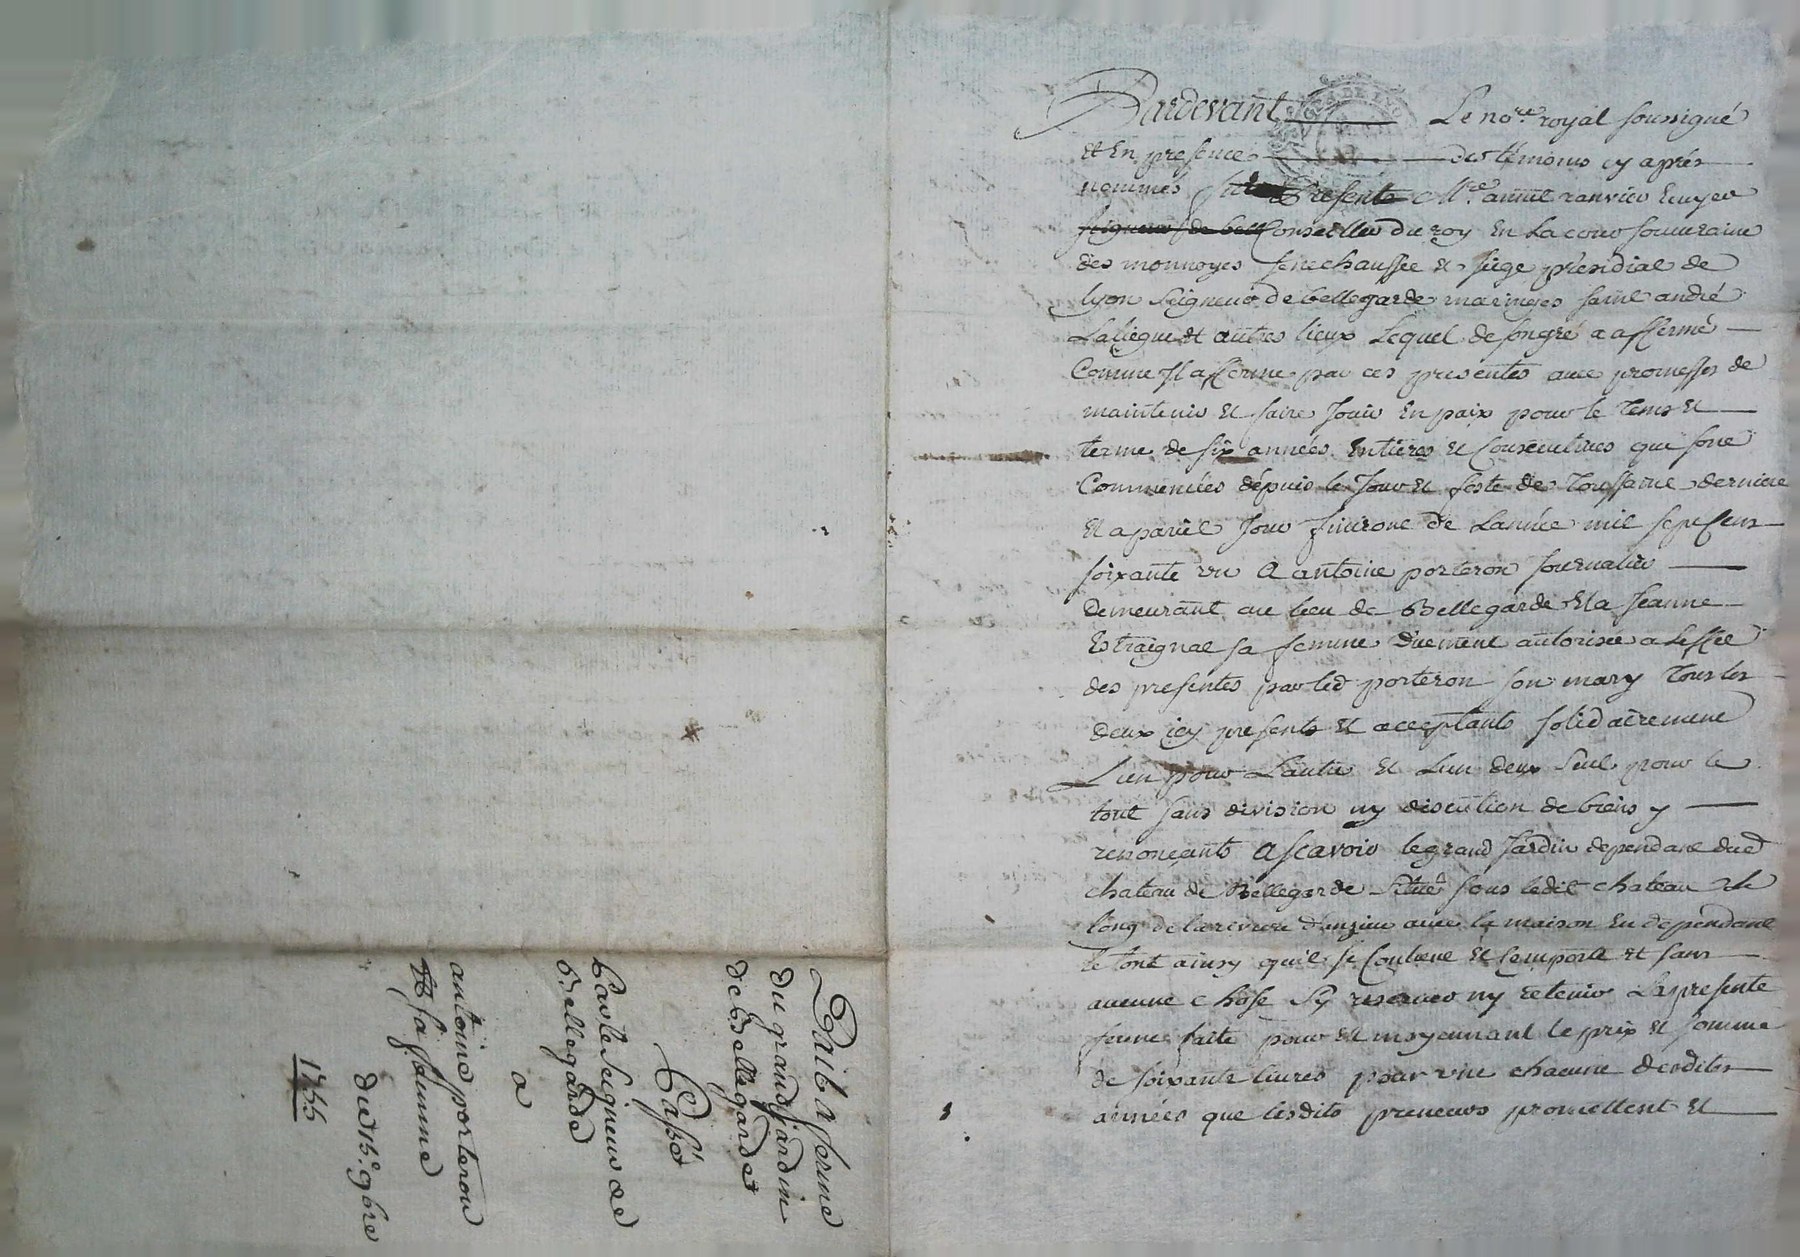 Pardevant Le no.re royal soussigné
et En presence des témoins cy aprés
nommés Presents M.re annet ranvier Ecuyer
seigneur de bell Conseiller du roy En La cour souveraine
des monnoyes senechaussée et siege presidial de
lyon Seigneur de bellegarde maringes saint andré
Laliegue et autres lieux Lequel de son gré a affermé
Comme Il afferme par ces presentes avec promesses de
maintenir et faire Jouir En paix pour le Tems et
terme de six années Entieres et Consecutives qui sont
Commencées dépuis le Jour et feste de Toussaint derniere
et a pareil Jour finiront de Lannée mil sept Cens
soixante un A antoine porteron Journalier
demeurant au lieu de Bellegarde et a Jeanne
Estraignat sa femme duement autorisée a Leffet
des presentes par led porteron son mary Tous les
deux icy presents et acceptants solidairement
Lun pour Lautre et Lun deux Seul pour le
tout sans division ny discution de biens y
renonçants Ascavoir le grand Jardin dependant dud
chateau de Bellegarde Situé sous ledit chateau le
long de la riviere d'anzieu avec la maison En dependant
le tout ainsy quil se Contient et Comporte et sans
aucune chose Sy reserver ny retenir La presente
ferme faite pour et moyennant le prix et somme
de soixante livres pour une chacune desdites
années que lesdits preneurs promettent et
Bail a ferme
du grand jardin
de Bellegarde
Passé
Par le Seigneur de
Bellegarde
a
antoine porteron
et sa femme
du 15.e 9bre
1755